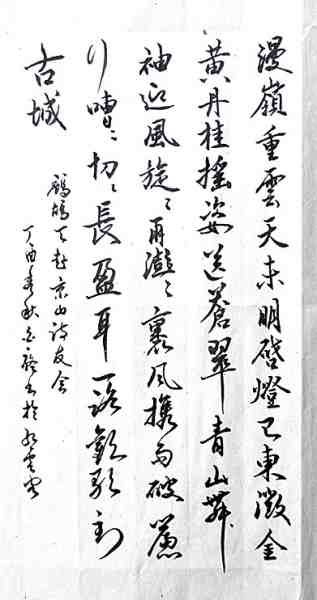 漫嶺重雲天未明啓燈已東徵金
黄丹桂摇姿送蒼翠青山舞
袖迎風旋〻雨〻裹風携雨破簾
行嘈〻切〻長盈耳一路歡歌到
古城
鷓鴣天赴京山诗友会
丁酉秋书於